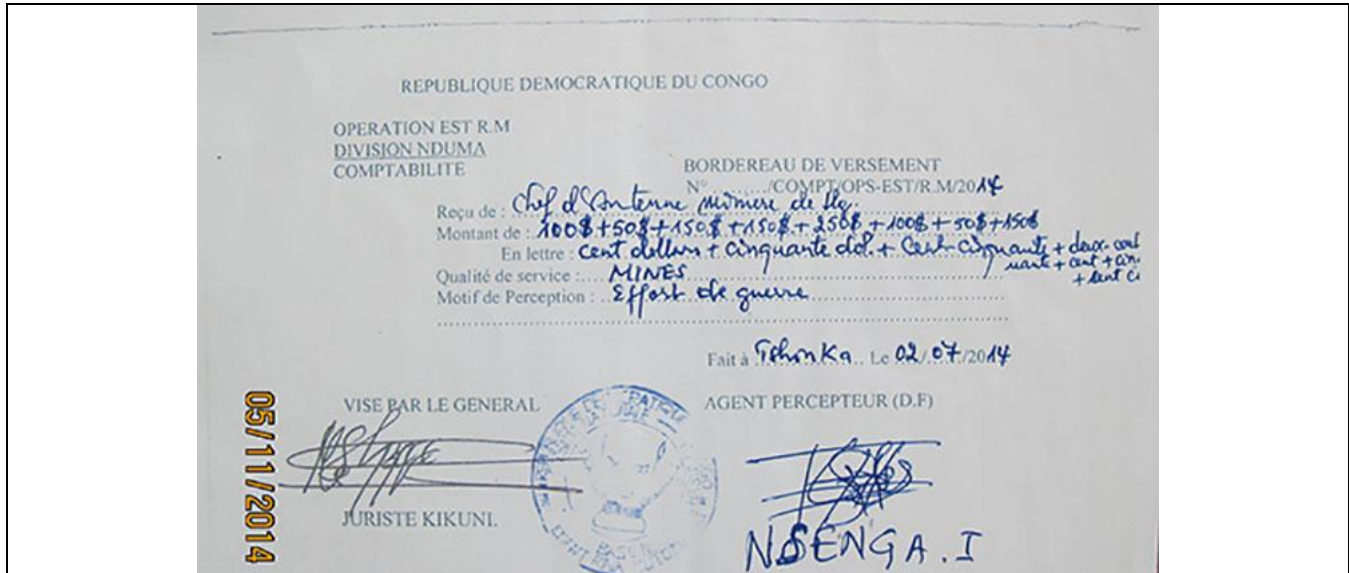 REPUBLIQUE DEMOCRATIQUE DU CONGO
OPERATION EST R.M
DIVISION NDUMA
COMPTABILITE
BORDEREAU DE VERSEMENT
N° ......../COMPT/OPS-EST/R.M/2014
Reçu de : Chef d'Antenne
Montant de : 100$+50$+150$+150$+250$+100$+50$+150$
En lettre : Cent dollars + Cinquante dol. + Cent cinquante + deux-cent
+ cent + cin
Qualité de service :.... MINES
Motif de Perception : .. Effort de guerre
Fait à Tshonka.. Le 02/.07./2014
VISE PAR LE GENERAL
AGENT PERCEPTEUR (D.F)
JURISTE KIKUNI.
NSENGA.I
05/11/2014